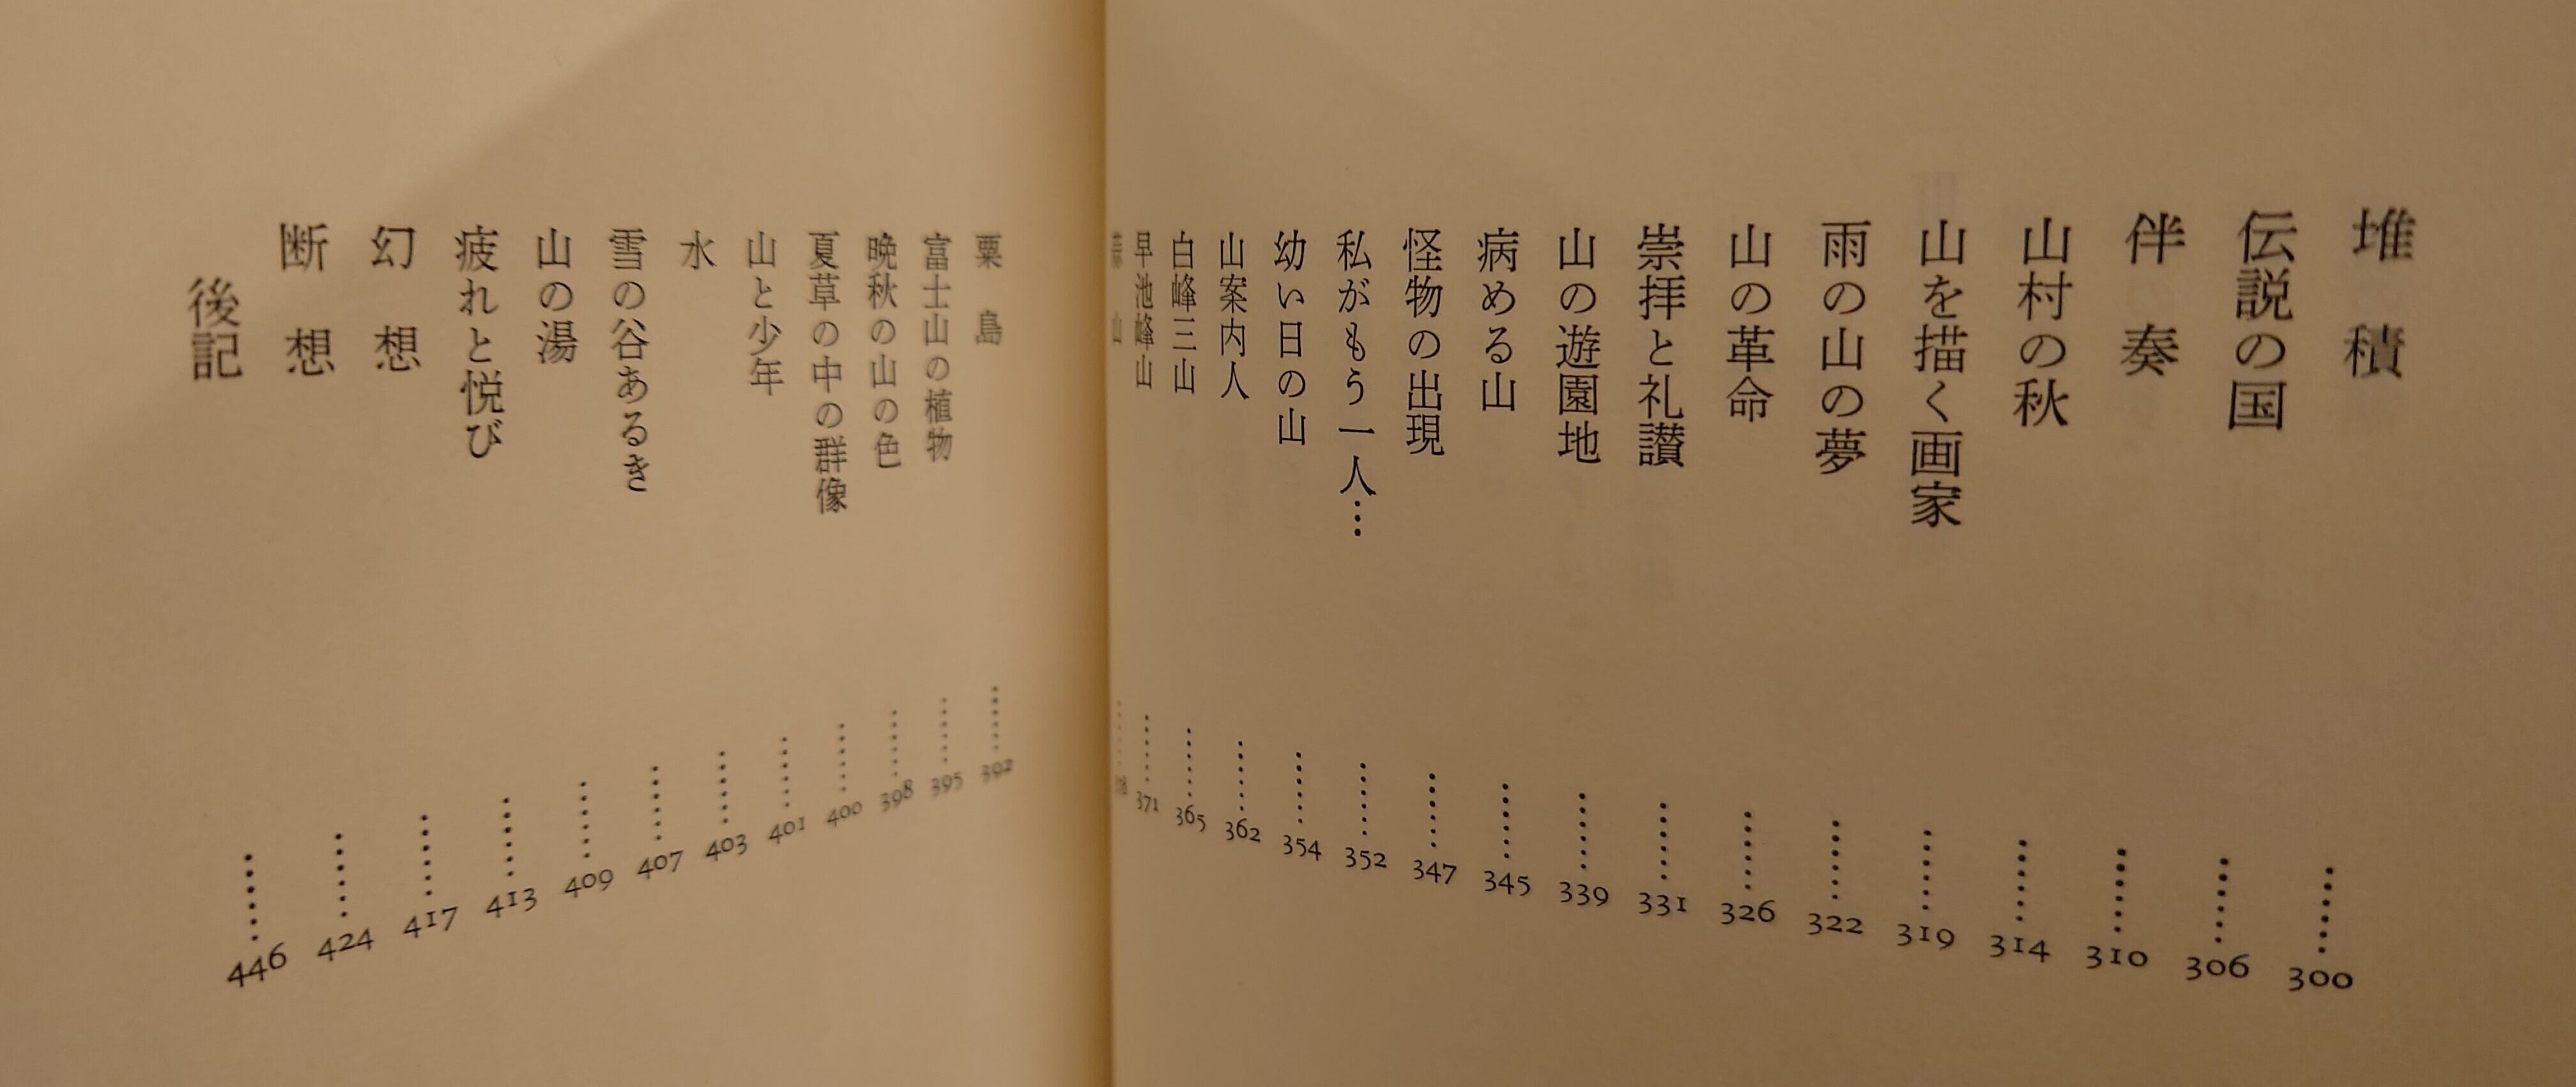 堆積……300
伝説の国……306
伴奏……310
山村の秋……314
山を描く画家……319
雨の山の夢……322
山の革命……326
崇拝と礼讃……331
山の遊園地……339
病める山……345
怪物の出現……347
私がもう一人………352
幼い日の山……354
山案内人……362
白峰三山……365
早池峰山……371
山……
粟島……392
富士山の植物……395
晩秋の山の色……398
夏草の中の群像……400
山と少年……401
水……403
雪の谷あるき……407
山の湯……409
疲れと悦び……413
幻想……417
断想……424
後記……446